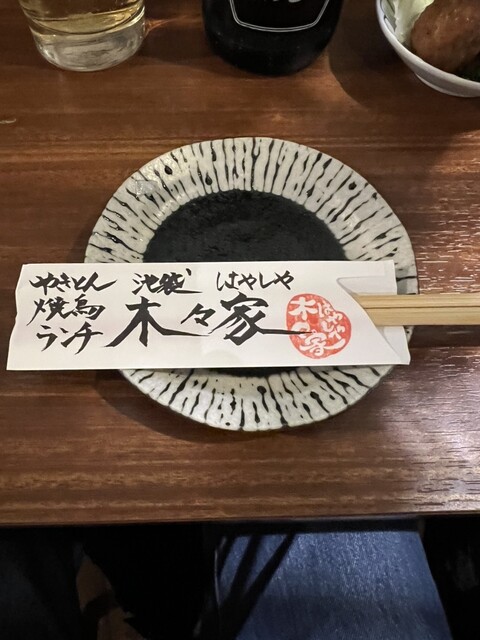 やきとん
焼鳥
ランチ
池袋 はやしや
木々家
はやしや
木々家